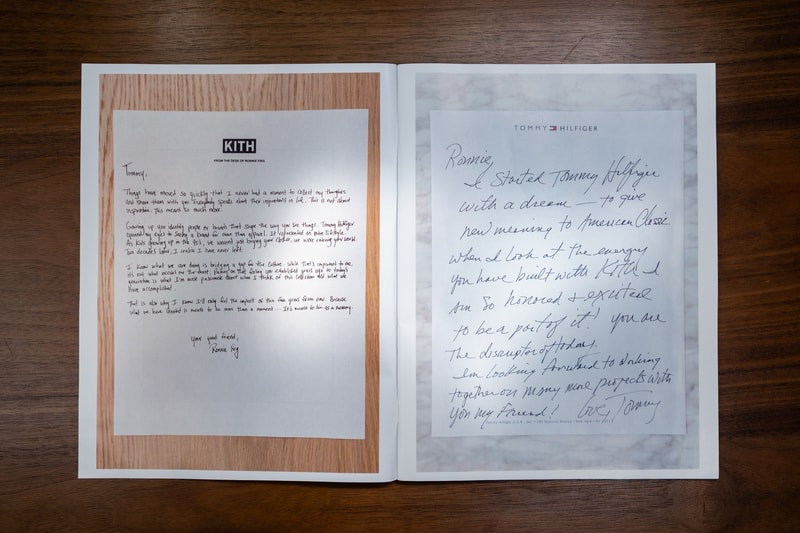 KITH
FROM THE DESK OF RONNIE FIEG
Tommy,
Things have moved so quickly that I never had a moment to collect my thoughts
and share them with you. Everybody speaks about their inspirations in life. This is not about
inspiration. This meant so much more.
Growing up you identify people or brands that shape the way you see things. Tommy Hilfiger
opened my eyes to seeing a brand for more than apparel. It represented an entire lifestyle.
As kids growing up in the 90's, we weren't just buying your clothes, we were entering your world.
Two decades later, I realize I have never left.
I know what we are doing is bridging a gap for the culture. While that's important to me,
it's not what excites me the most. Passing on that feeling you established years ago to today's
generation is what I'm most passionate about when I think of this collection and what we
have accomplished.
That is also why I know I'll only feel the impact of this few years from now. Because
what we have created is meant to be more than a moment - It's meant to be a memory.
Your good friend,
Ronnie Fieg
TOMMY HILFIGER
Ronnie,
I Started Tommy Hilfiger
with a dream — to give
new meaning to American Classic
when I look at the energy
you have built with KITH I
am so honored + excited
to be a part of it! you are
The disruptor of today.
I'm looking forward to working
together on many more projects with
you my Friend! Love, Tommy